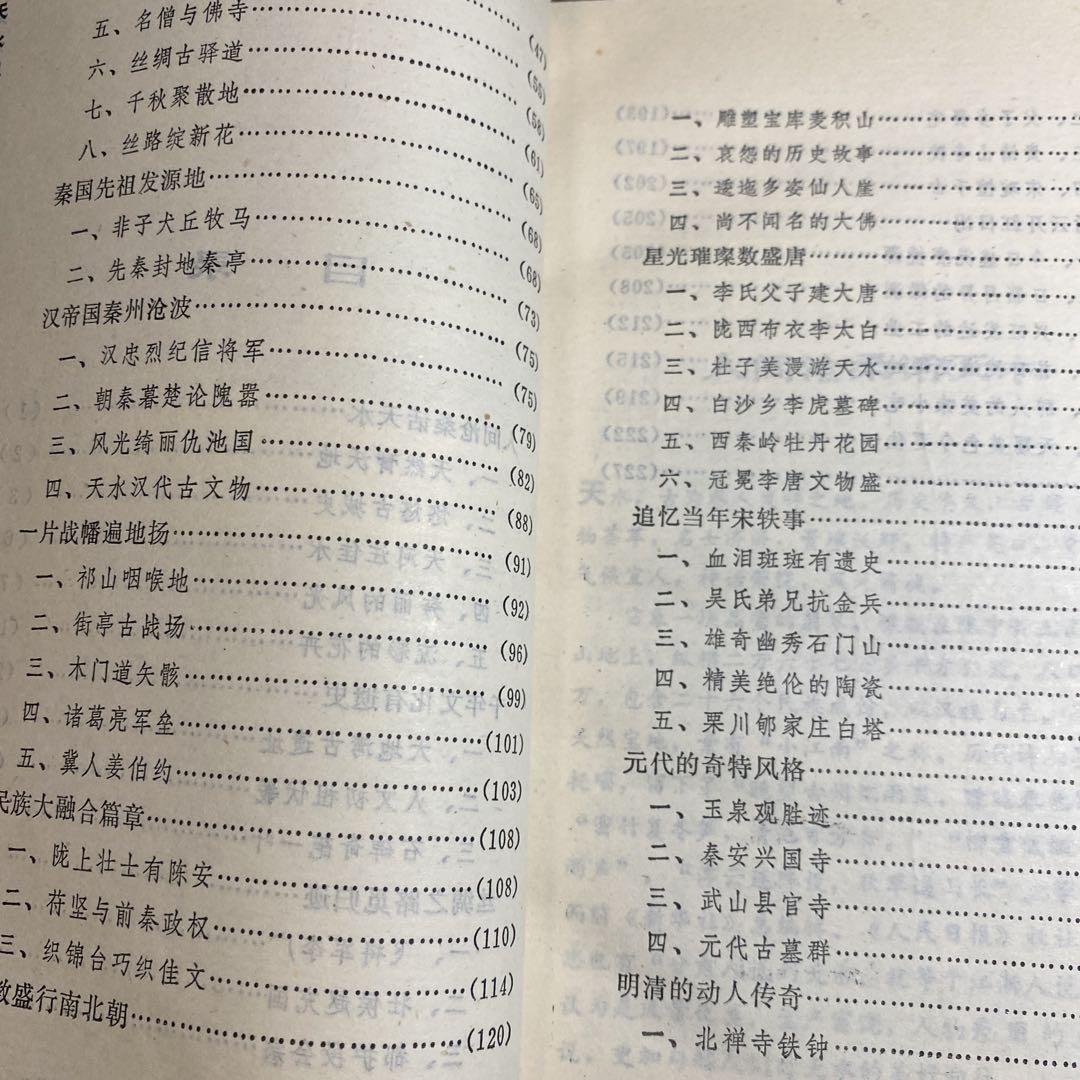 五、名僧与佛寺……(56)
六、丝绸古驿道……(58)
七、千秋聚散地……(61)
八、丝路绽新花……(65)
秦国先祖发源地……(68)
一、非子犬丘牧马……(68)
二、先秦封地秦亭……(73)
汉帝国秦州沧波……(75)
一、汉忠烈纪信将军……(75)
二、朝秦暮楚论隗嚣……(79)
三、风光绮丽仇池国……(82)
四、天水汉代古文物……(88)
一片战幡遍地扬……(91)
一、祁山咽喉地……(92)
二、街亭古战场……(96)
三、木门道矢骸……(99)
四、诸葛亮军垒……(101)
五、冀人姜伯约……(103)
民族大融合篇章……(108)
一、陇上壮士有陈安……(108)
二、苻坚与前秦政权……(110)
三、织锦台巧织佳文……(114)
盛行南北朝……(120)
一、雕塑宝库麦积山……
二、哀怨的历史故事……
三、逶迤多姿仙人崖……
四、尚不闻名的大佛……
星光璀璨数盛唐……
一、李氏父子建大唐……
二、陇西布衣李太白……
三、杜子美漫游天水……
四、白沙乡李虎墓碑……
五、西秦岭牡丹花园……
六、冠冕李唐文物盛……
追忆当年宋轶事……
一、血泪斑斑有遗史……
二、吴氏弟兄抗金兵……
三、雄奇幽秀石门山……
四、精美绝伦的陶瓷……
五、栗川郇家庄白塔……
元代的奇特风格……
一、玉泉观胜迹……
二、秦安兴国寺……
三、武山县官寺……
四、元代古墓群……
明清的动人传奇……
一、北禅寺铁钟……